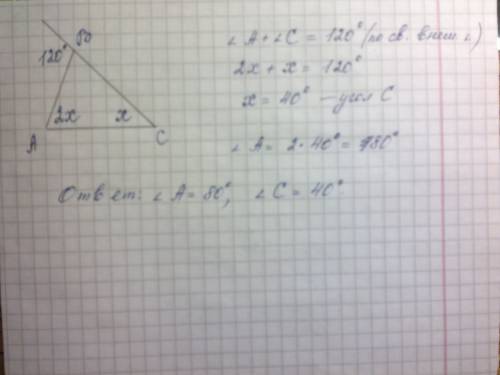 120° B
2x x
A C
∠A + ∠C = 120° (по св. внеш. ∠)
2x + x = 120°
x = 40° — угол C
∠A = 2 · 40° = 80°
Ответ: ∠A = 80°, ∠C = 40°